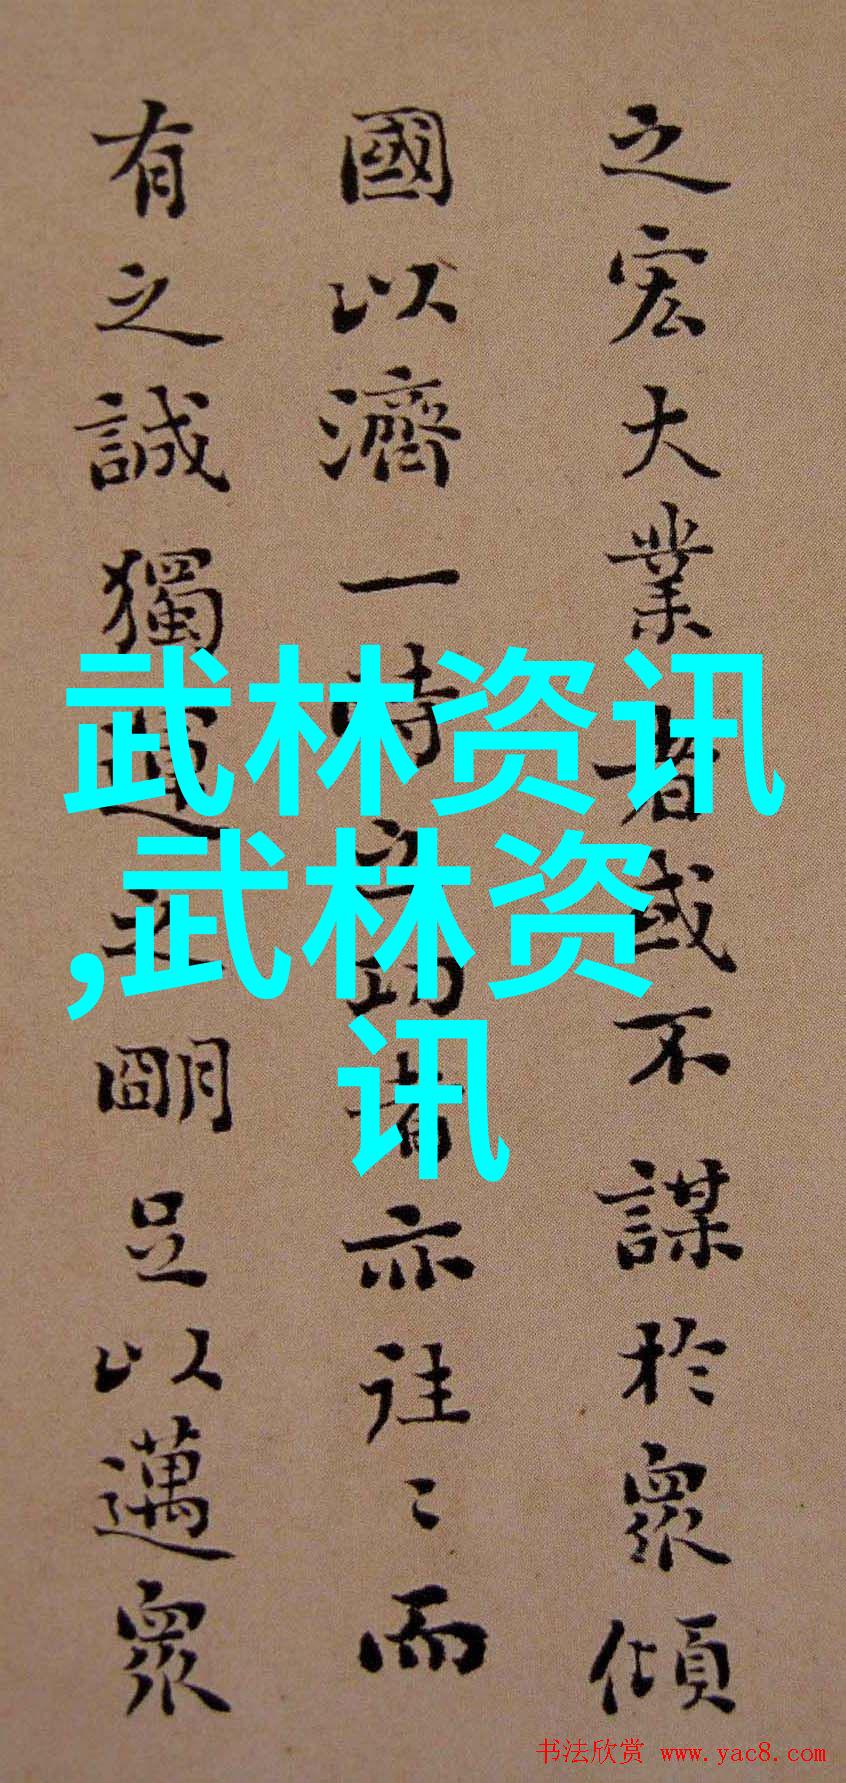 之宏大業者或不謀於衆傾
國以濟一時之功者亦往〻而
有之誠獨運之朙足以邁衆
武林资讯
,武林资
讯
书法欣赏 www.yac8.com